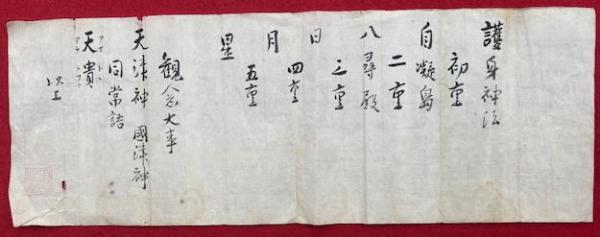 護身神法
初重
自凝島
二重
八尋殿
三重
日
四重
月
五重
星
観念大事
天津神 國津神
同常語
天貴
以上